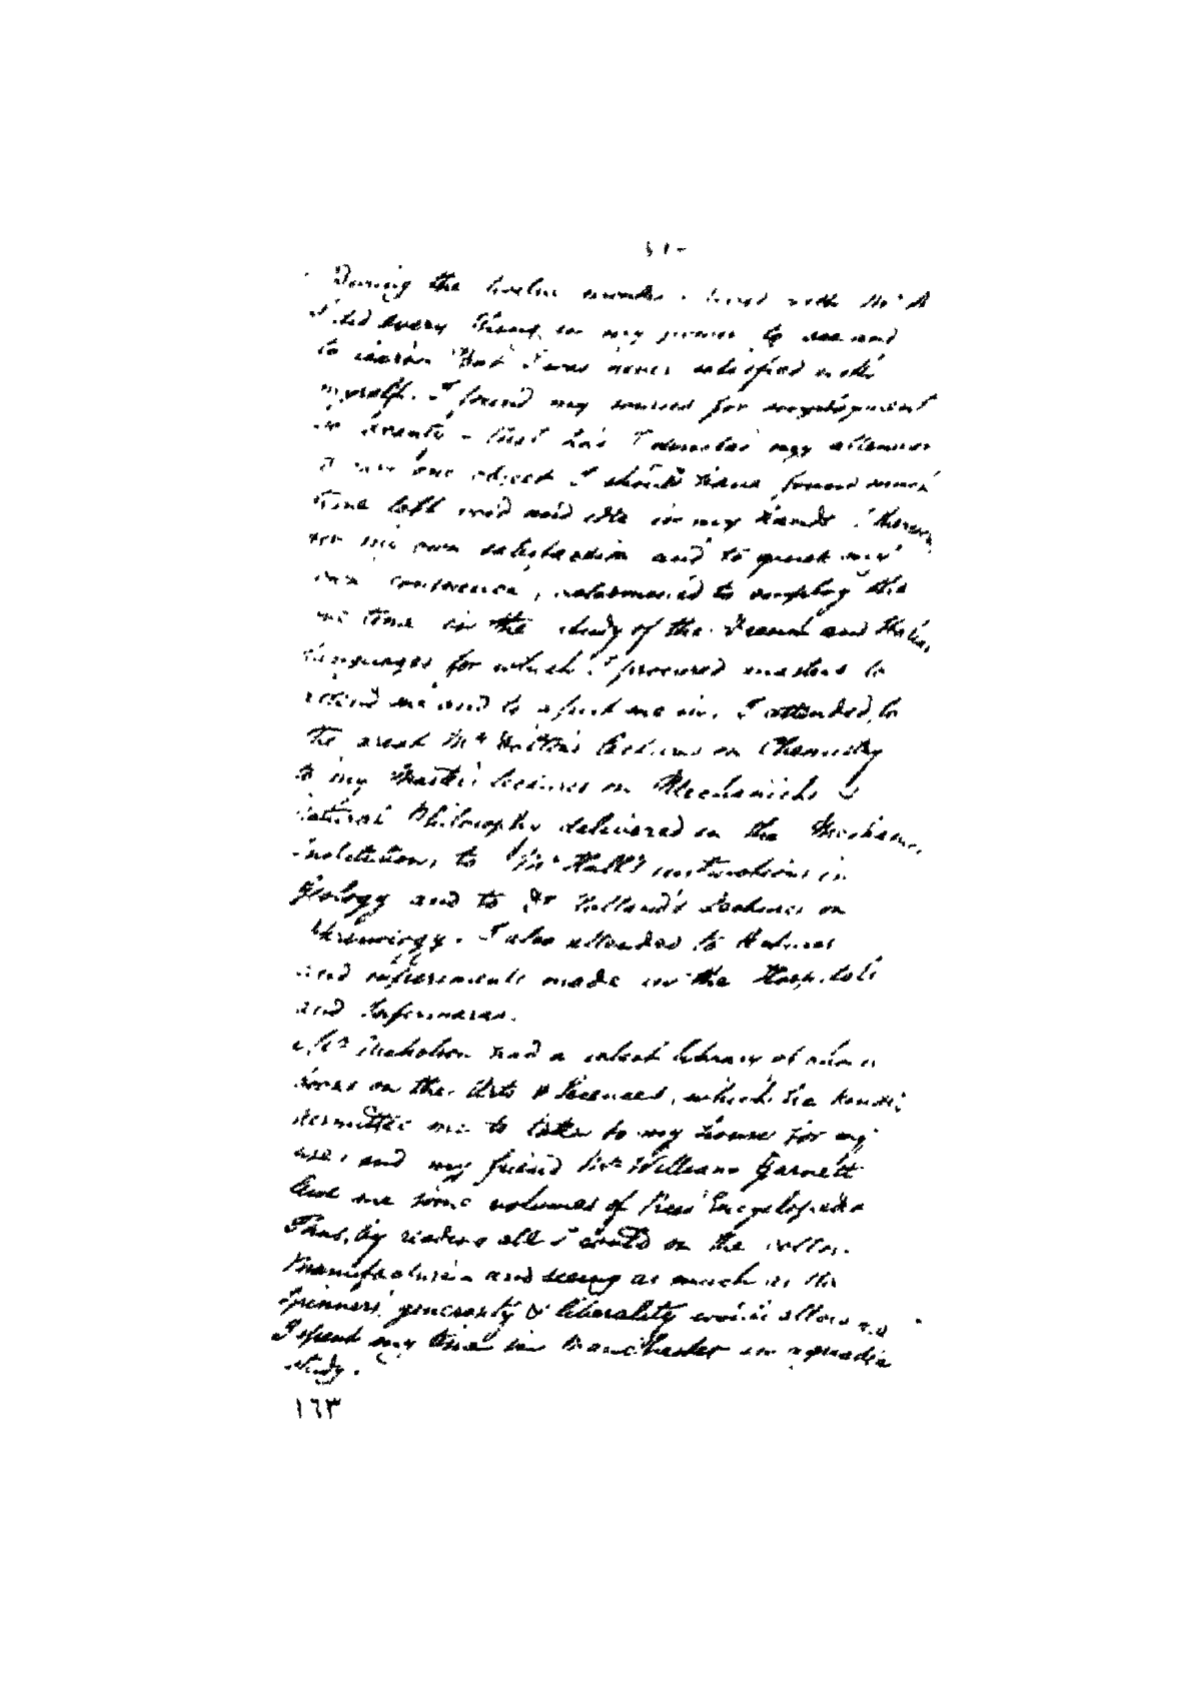 During the twelve months I lived with Mr A
I did every thing in my power to see and
to learn But I was never satisfied with
myself. I found my sources for employment
so scanty - that had I devoted my attention
to one object I should have found much
time left void and idle in my hands I
for my own satisfaction and to quiet my
own conscience, determined to employ the
time in the study of the French and Italian
languages for which I procured masters to
attend me and to assist me in. I attended to
the great Mr Dalton's lectures on Chemistry
to my lectures on Mechanicks &
Natural Philosophy delivered in the Mechanic
institution, to Mr Hall's instructions in
Geology and to Dr Holland's lectures on
Phrenology. I also attended to lectures
and experiments made in the Hospitals
and Infirmaries.
Mr Nicholson had a select library of
works on the Arts & Sciences, which he
permitted me to take to my house for my
use, and my friend Mr William Garnett
gave me some volumes of Rees' Encyclopedia
Thus, by reading all I could on the cotton
Manufacture and seeing as much as the
Spinners' generosity & liberality would allow me
I spent my time in Manchester in
study.
١٦٣